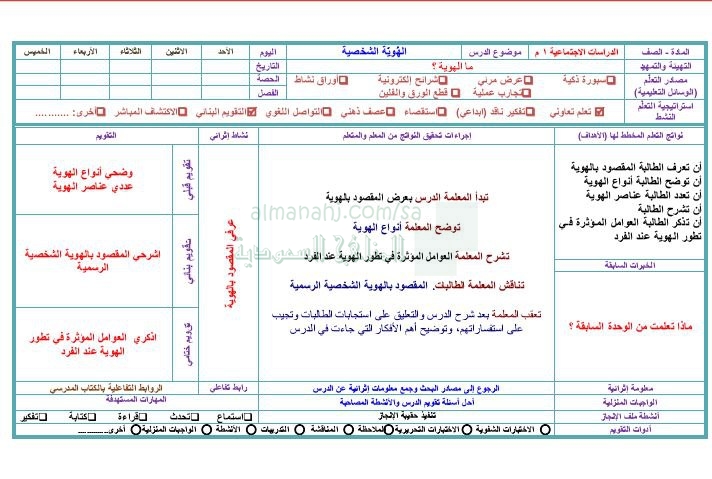 المادة - الصف
الدراسات الاجتماعية ١ م
موضوع الدرس
الهُويّة الشخصية
اليوم
الأحد
الاثنين
الثلاثاء
الأربعاء
الخميس
التهيئة والتمهيد
ما الهوية ؟
التاريخ
مصادر التعلم
(الوسائل التعليمية)
سبورة ذكية
عرض مرئي
شرائح إلكترونية
أوراق نشاط
الحصة
تجارب عملية
قطع الورق والفلين
الفصل
استراتيجية التعلم
النشط
تعلم تعاوني
تفكير ناقد (ابداعي)
استقصاء
عصف ذهني
التواصل اللغوي
التقويم البنائي
الاكتشاف المباشر
أخرى: ...........
نواتج التعلم المخطط لها (الأهداف)
إجراءات تحقيق النواتج من المعلم والمتعلم
نشاط إثرائي
التقويم
أن تعرف الطالبة المقصود بالهوية
أن توضح الطالبة أنواع الهوية
أن تعدد الطالبة عناصر الهوية
أن تشرح الطالبة
أن تذكر الطالبة العوامل المؤثرة في
تطور الهوية عند الفرد
الخبرات السابقة
ماذا تعلمت من الوحدة السابقة ؟
تبدأ المعلمة الدرس بعرض المقصود بالهوية
توضح المعلمة أنواع الهوية
تشرح المعلمة العوامل المؤثرة في تطور الهوية عند الفرد
تناقش المعلمة الطالبات. المقصود بالهوية الشخصية الرسمية
تعقب المعلمة بعد شرح الدرس والتعليق على استجابات الطالبات وتجيب
على استفساراتهم، وتوضيح أهم الأفكار التي جاءت في الدرس
almanahj.com/sa
المناهج السعودية
عرفي المقصود بالهوية
تقويم قبلي
وضحي أنواع الهوية
عددي عناصر الهوية
تقويم بنائي
اشرحي المقصود بالهوية الشخصية
الرسمية
تقويم ختامي
اذكري العوامل المؤثرة في تطور
الهوية عند الفرد
معلومة إثرائية
الرجوع إلى مصادر البحث وجمع معلومات إثرائية عن الدرس
رابط تفاعلي
الروابط التفاعلية بالكتاب المدرسي
الواجبات المنزلية
أحل أسئلة تقويم الدرس والأنشطة المصاحبة
المهارات المستهدفة
أنشطة ملف الإنجاز
تنفيذ حقيبة الإنجاز
استماع
تحدث
قراءة
كتابة
تفكير
أدوات التقويم
الاختبارات الشفوية
الاختبارات التحريرية
الملاحظة
المناقشة
التدريبات
الأنشطة
الواجبات المنزلية
أخرى...........